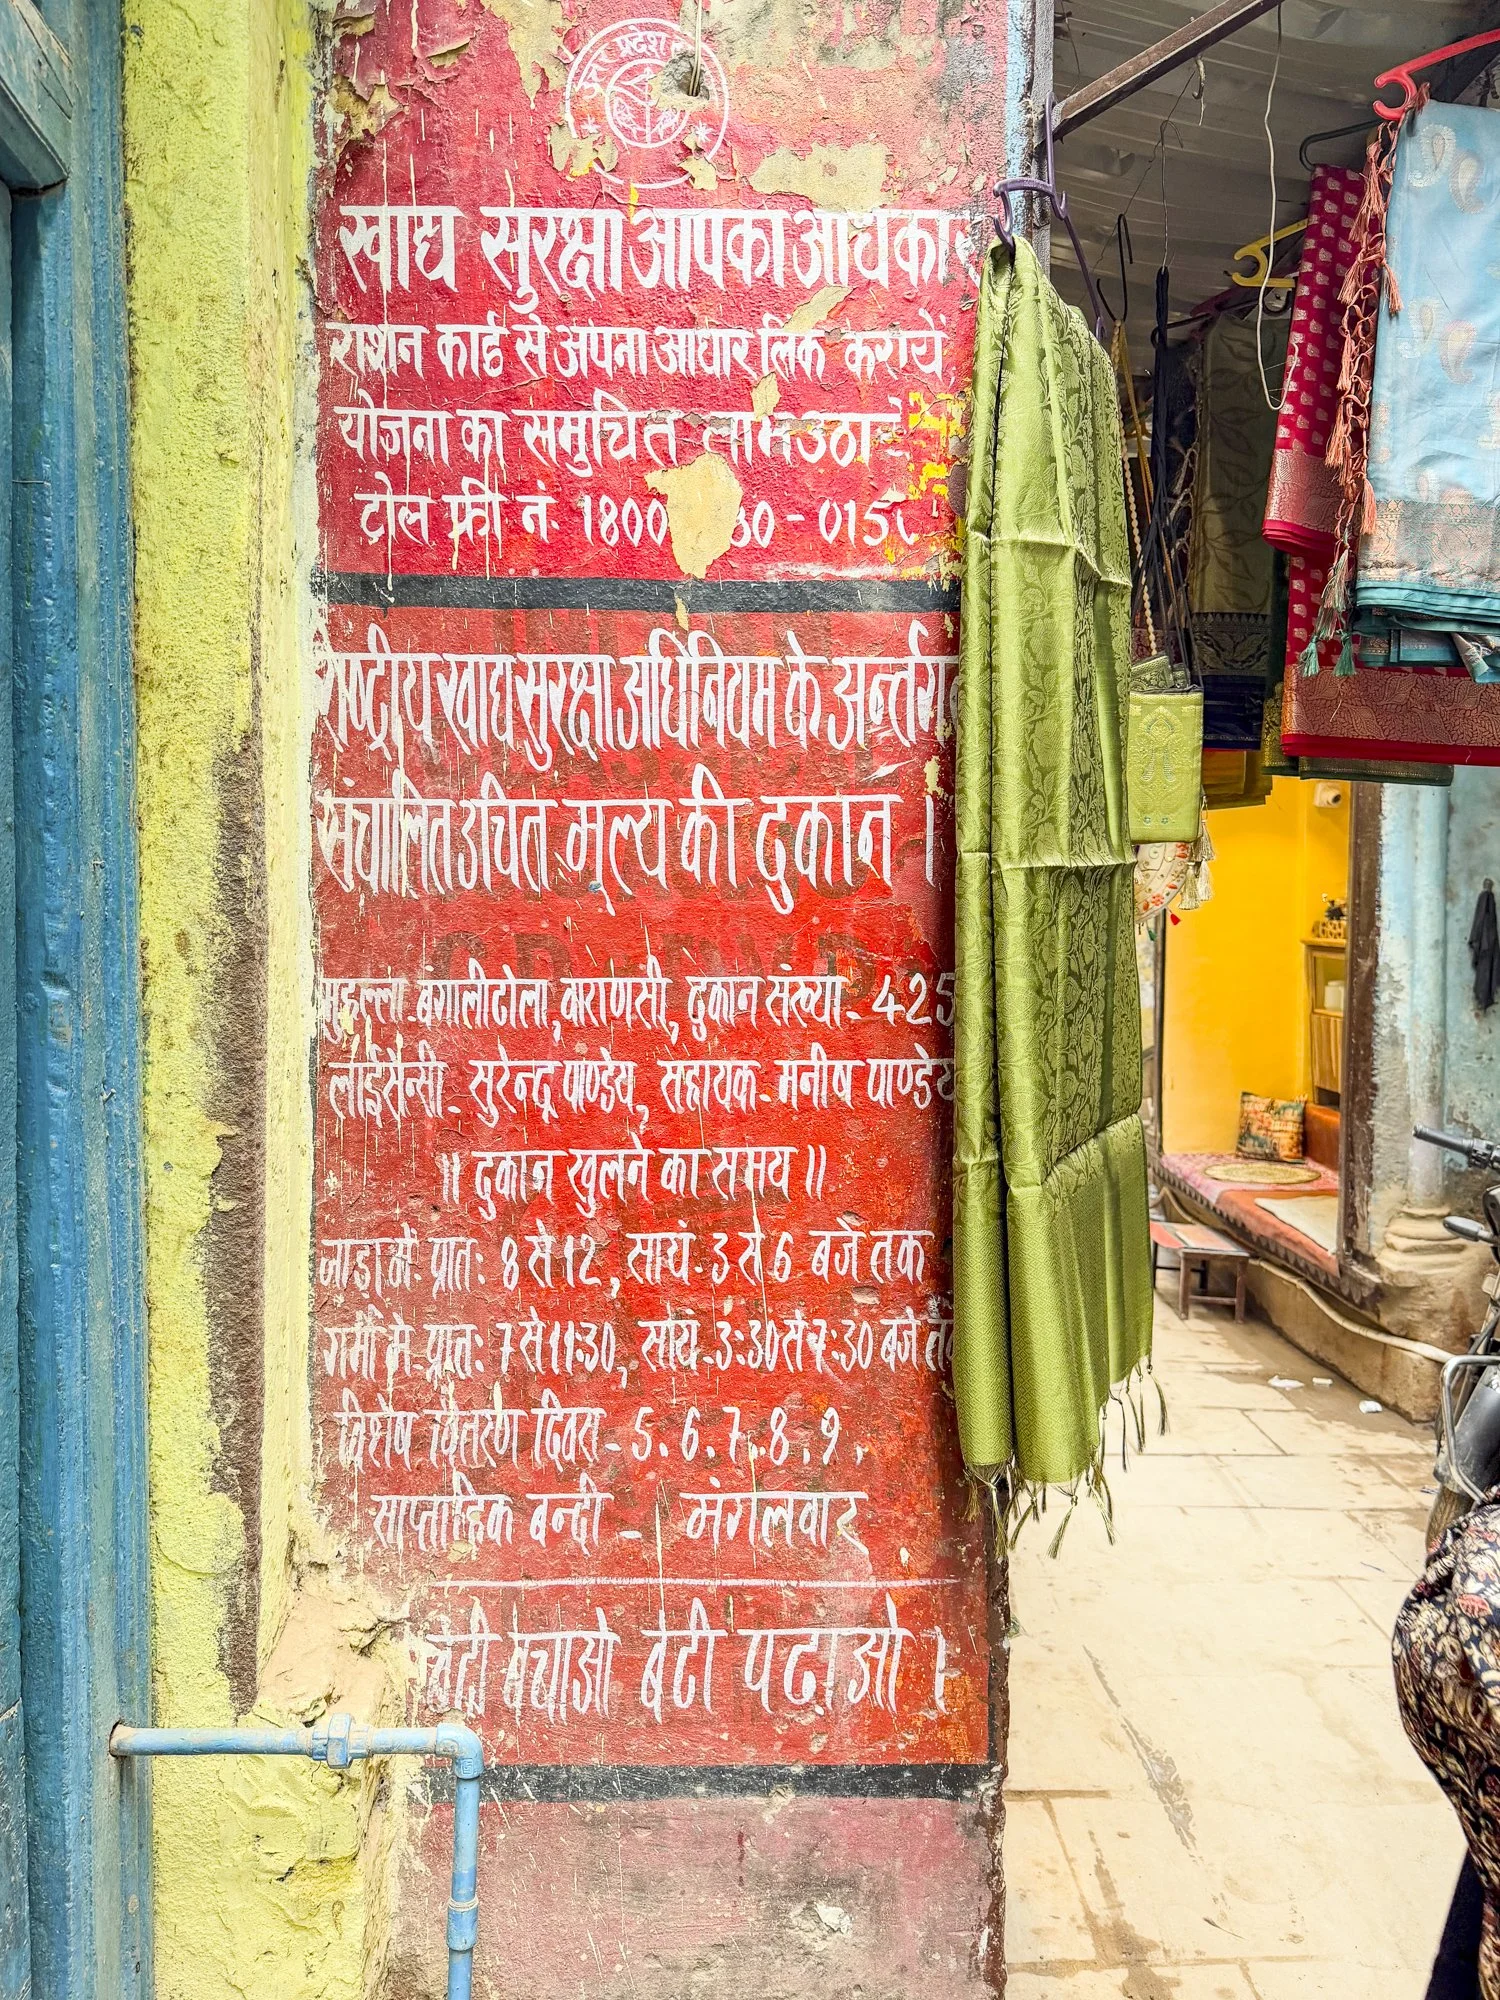 उत्तर प्रदेश
खाद्य सुरक्षा आपका अधिकार
राशन कार्ड से अपना आधार लिंक करायें,
योजना का समुचित लाभ उठायें
टोल फ्री नं. 1800 - 0150
राष्ट्रीय खाद्य सुरक्षा अधिनियम के अन्तर्गत
संचालित उचित मूल्य की दुकान ।
मुहल्ला- बंगालीटोला, वाराणसी, दुकान संख्या- 425
लाईसैन्सी- सुरेन्द्र पाण्डेय, सहायक- मनीष पाण्डेय
॥ दुकान खुलने का समय ॥
जाड़ा में प्रात: 8 से 12, सायं- 3 से 6 बजे तक
गर्मी में- प्रात: 7 से 11:30, सायं- 3:30 से 7:30 बजे तक
विशेष वितरण दिवस- 5. 6. 7. 8. 9.
साप्ताहिक बन्दी - मंगलवार
बेटी बचाओ बेटी पढाओ ।